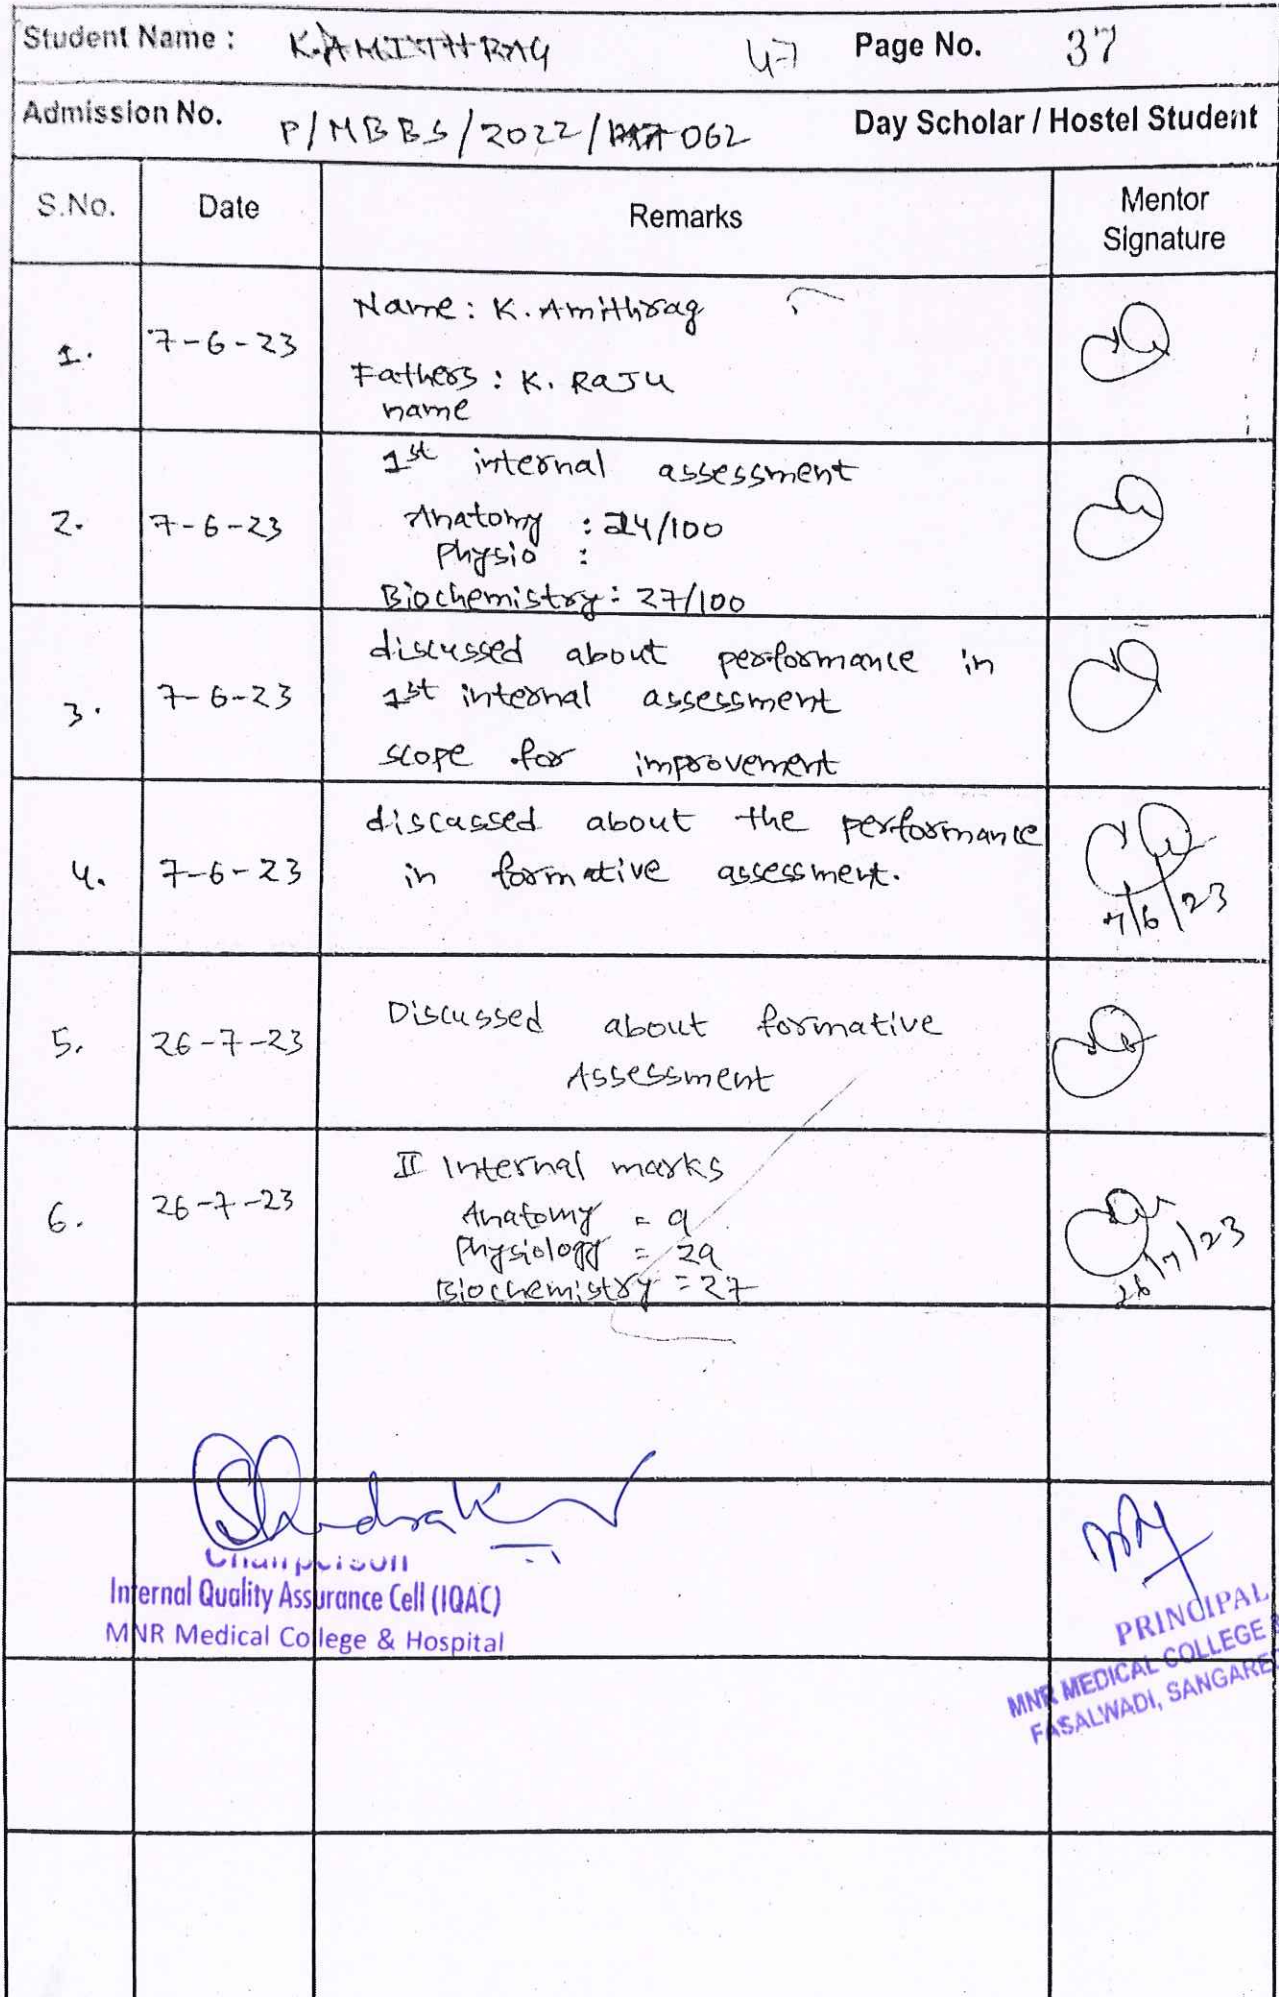 Student Name : K.AMITHRAG 47 Page No. 37
Admission No. P/MBBS/2022/062 Day Scholar / Hostel Student
S.No. Date Remarks Mentor Signature
1. 7-6-23 Name : K. Amithrag
Fathers : K. RaJu
name
2. 7-6-23 1st internal assessment
Anatomy : 24/100
Physio :
Biochemistry : 27/100
3. 7-6-23 discussed about performance in
1st internal assessment
scope for improvement
4. 7-6-23 discussed about the performance
in formative assessment.
7/6/23
5. 26-7-23 Discussed about formative
Assessment
6. 26-7-23 II Internal marks
Anatomy = 9
Physiology = 29
Biochemistry = 27
26/7/23
Chairperson
Internal Quality Assurance Cell (IQAC)
MNR Medical College & Hospital
PRINCIPAL
MNR MEDICAL COLLEGE
FASALWADI, SANGARE